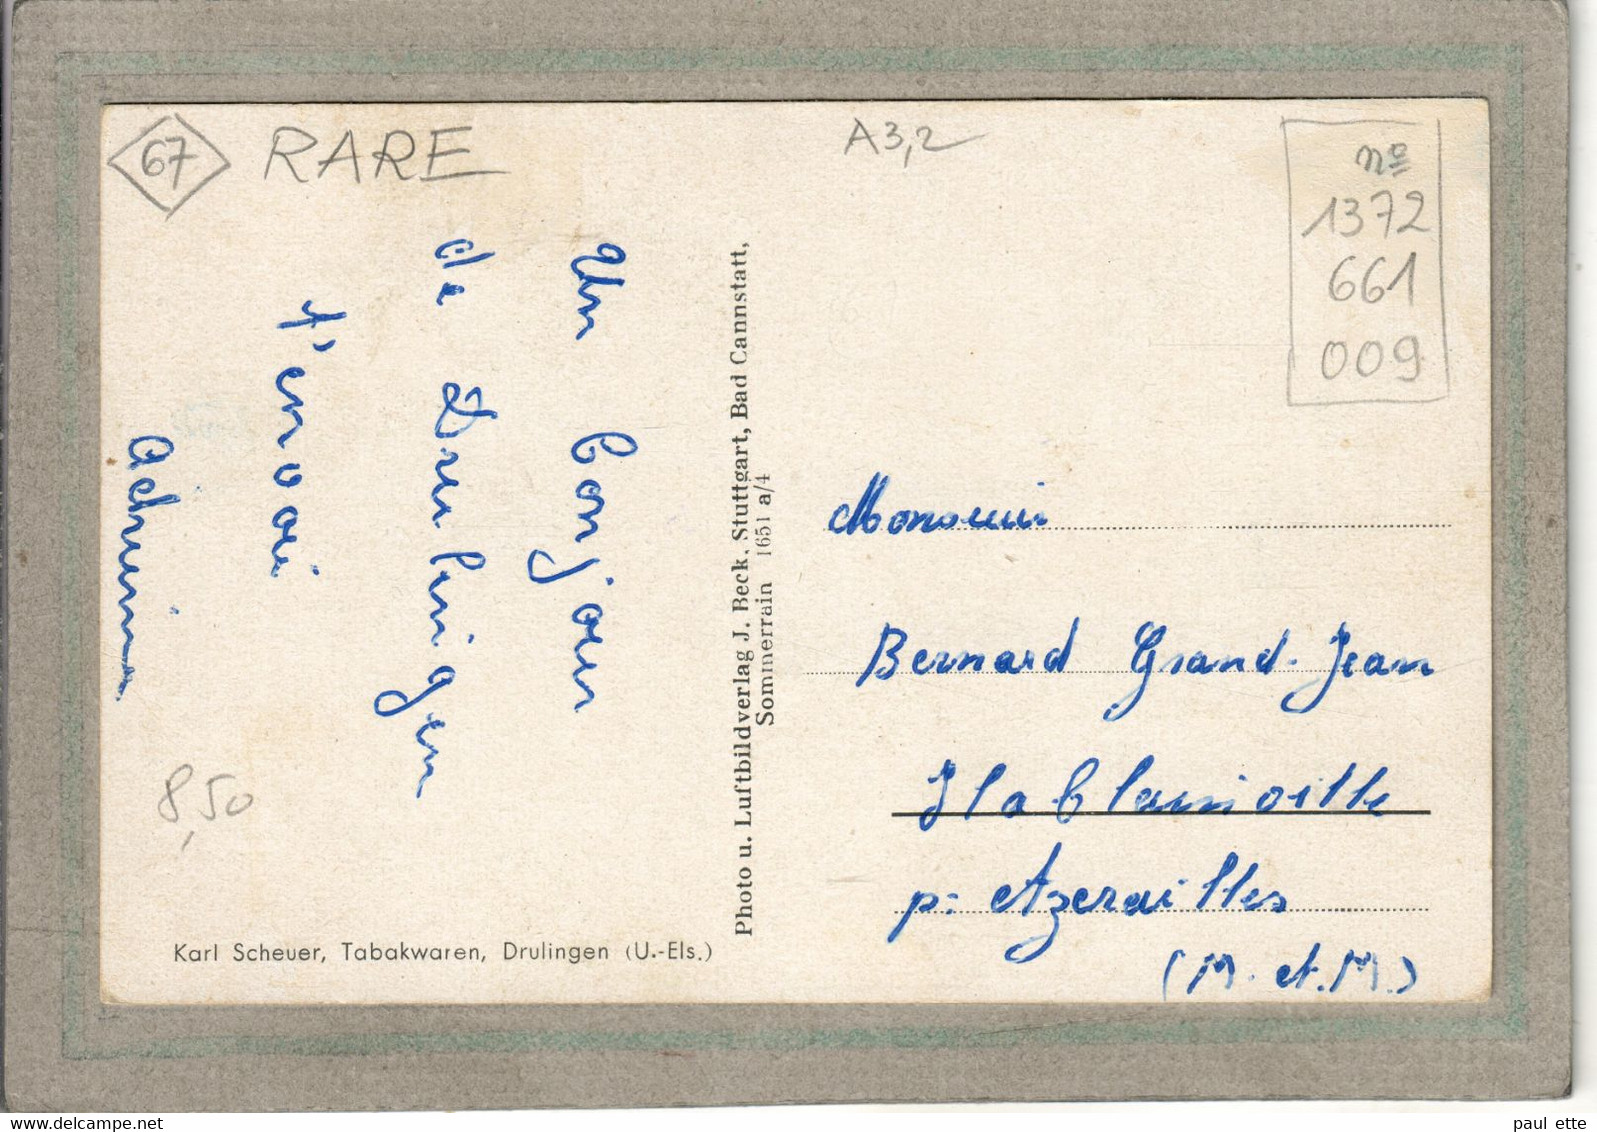 67
RARE
A3,2
nº
1372
661
009
Un bonjour
de Drulingen
t'envoi
8,50
Karl Scheuer, Tabakwaren, Drulingen (U.-Els.)
Photo u. Luftbildverlag J. Beck, Stuttgart, Bad Cannstatt,
Sommerrain 1651 a/4
Monsieur
Bernard Grand-Jean
Hablainville
p: Azerailles
(M. et. M.)
www.delcampe.net
paul ette